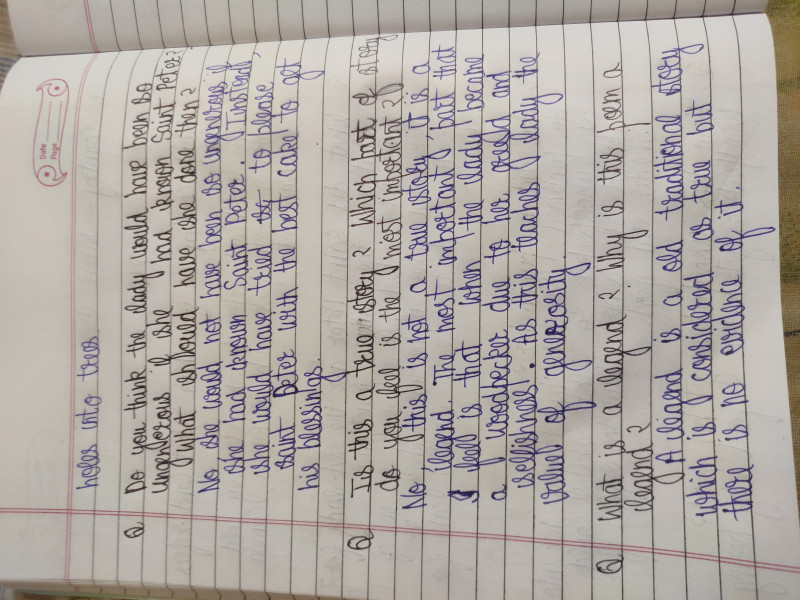 Date
Page
holes into trees.
Q Do you think the lady would have been so
ungenerous if she had known Saint Peter?
What should have she done then?
No she would not have been so ungenerous if
she had known Saint Peter. Instead,
she would have tried to please
saint Peter with the best cake to get
his blessings.
Q Is this a true story? Which part of story
do you feel is the most important?
No this is not a true story it is a
legend. The most important part that
I feel is that when the lady became
a woodpecker due to her greed and
selfishness. As this teaches lady the
value of generosity.
Q What is a legend? Why is this poem a
legend?
A legend is a old traditional story
which is considered as true but
there is no evidence of it.